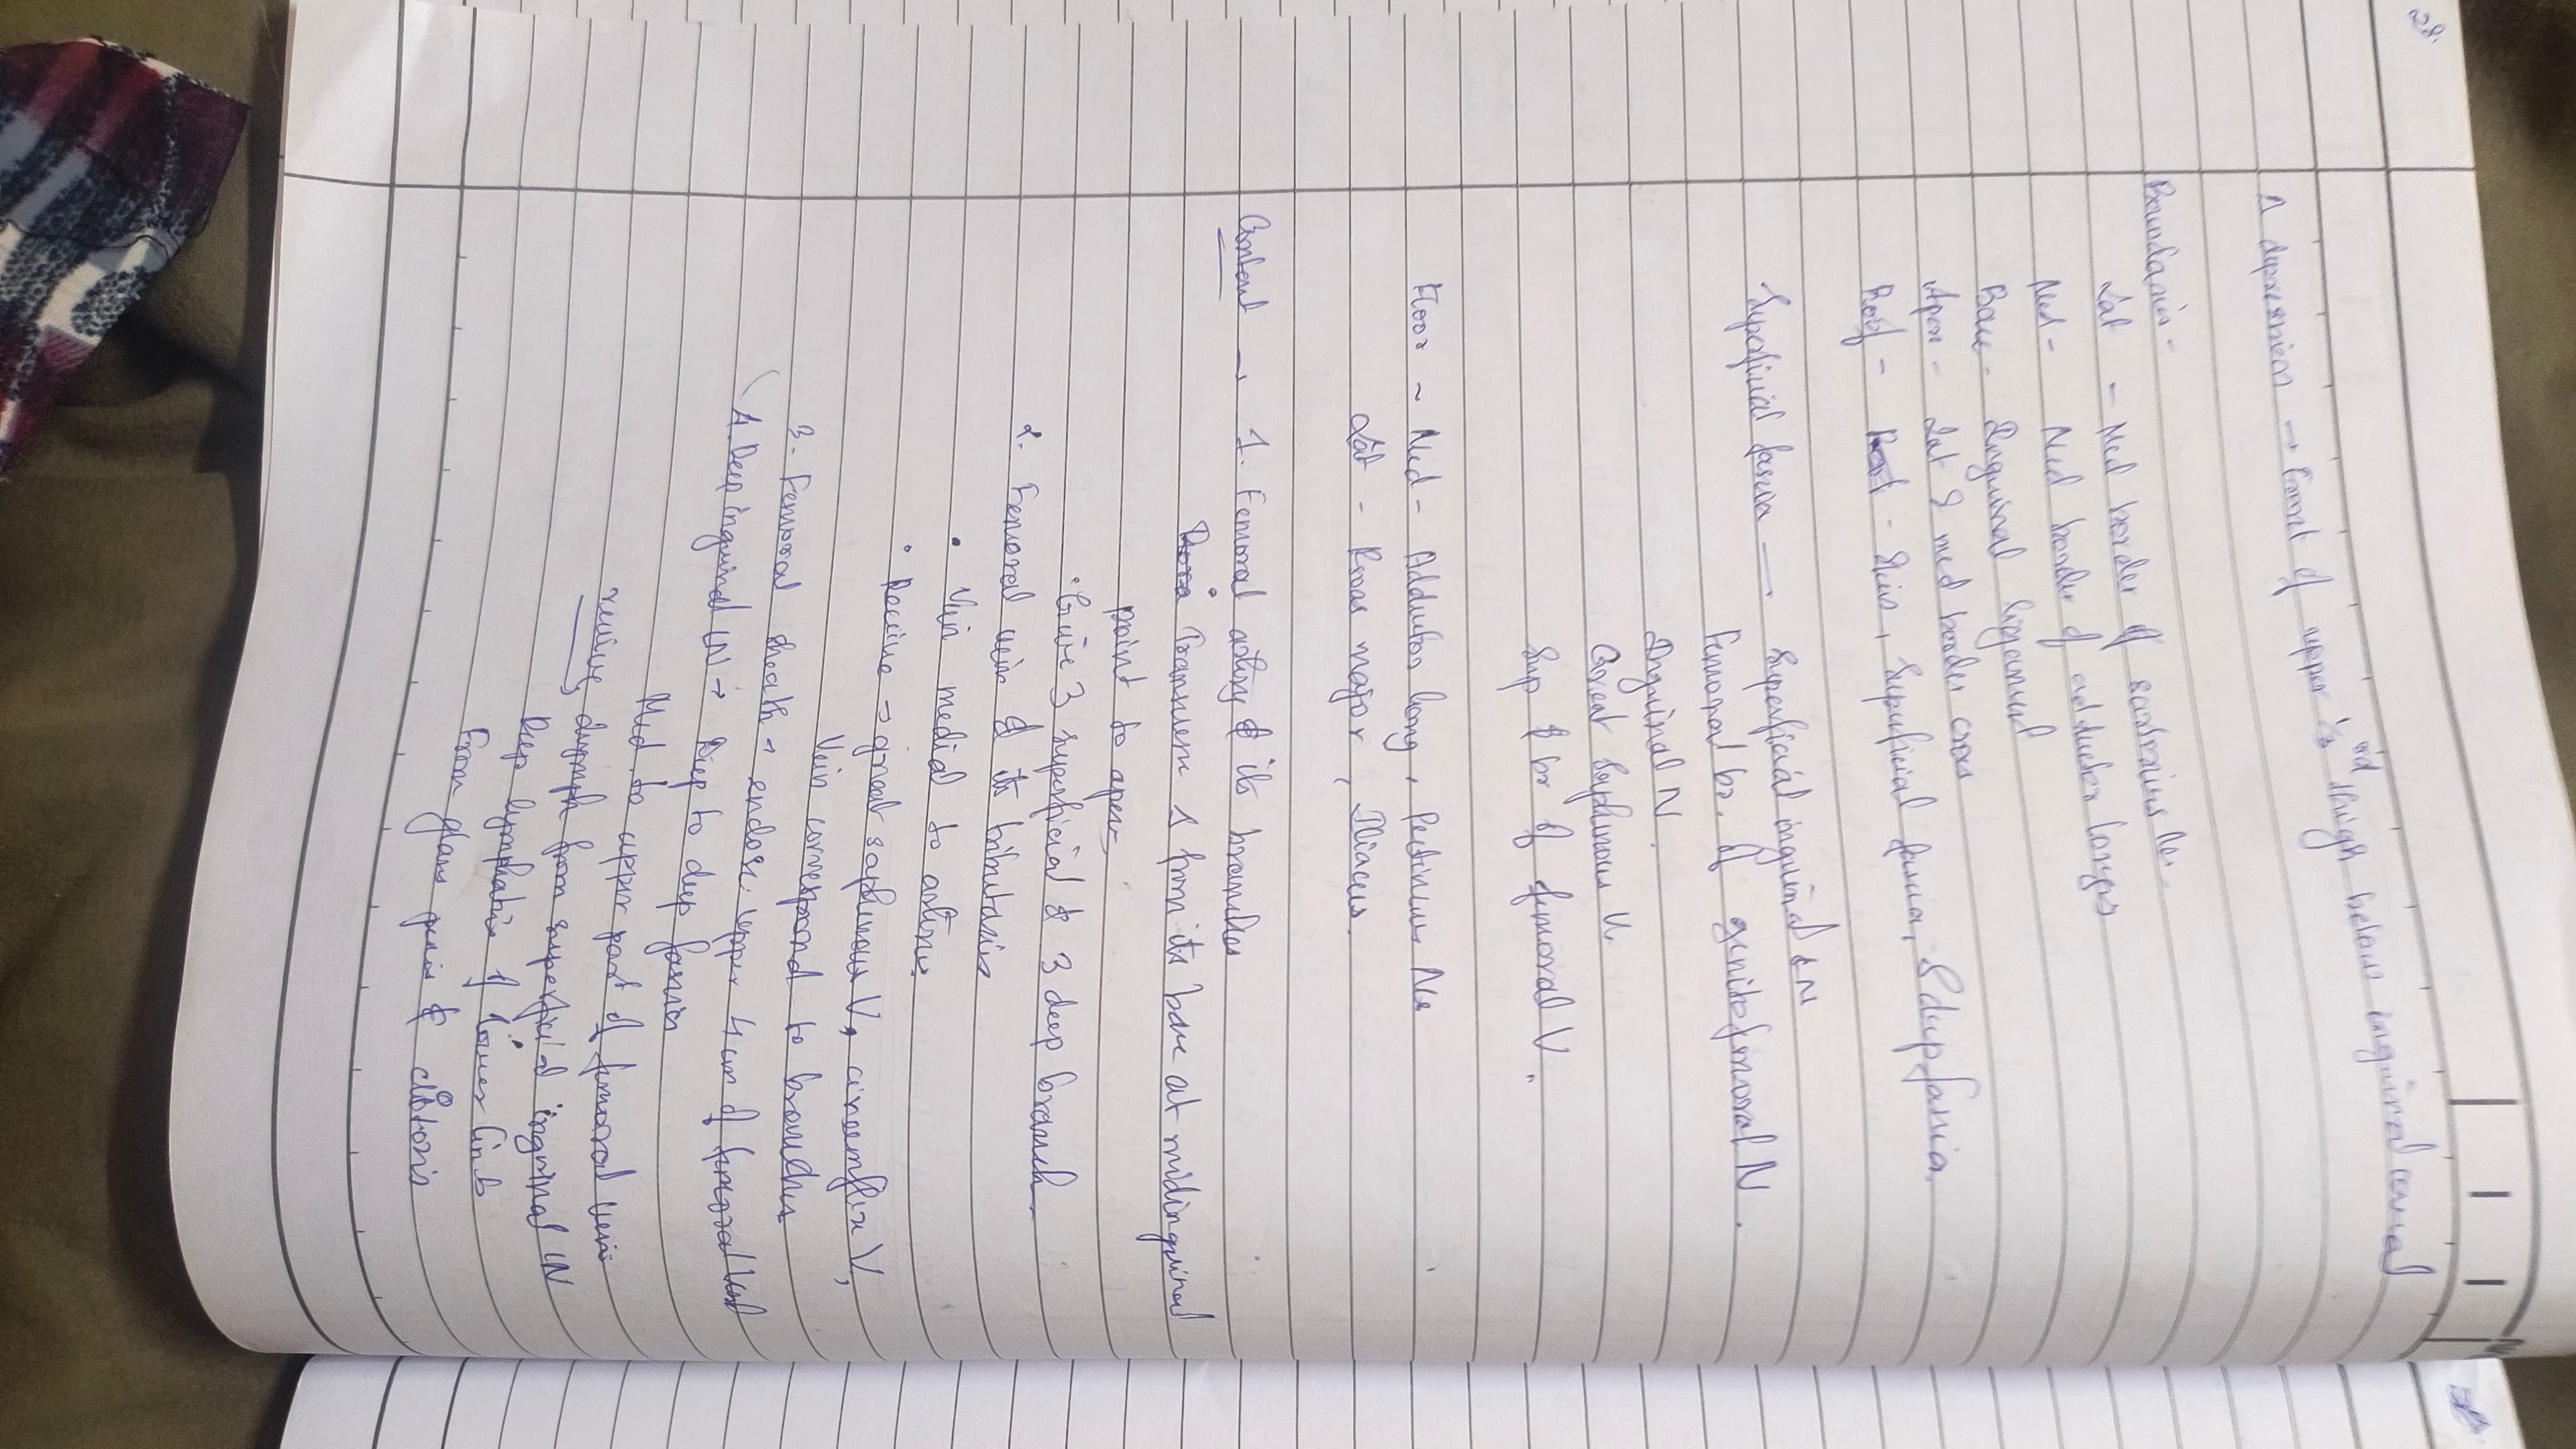 28.
A depression → Front of upper 1/3rd thigh below inguinal canal
Boundaries -
Lat - Med border of sartorius
Med - Med border of adductor longus
Base - Inguinal ligament
Apex - Lat & med border cross
Roof - Skin, Superficial fascia, & deep fascia,
Superficial fascia — Superficial inguinal LN
Femoral br. of genitofemoral N.
Inguinal N.
Great saphenous V.
Sup br of femoral V.
Floor ~ Med - Adductor long, Pectineus Ms
Lat - Psoas major, Iliacus.
Content → 1. Femoral artery & its branches
• Transverse from its base at midinguinal
point to apex,
• Give 3 superficial & 3 deep branch.
2. Femoral vein & its tributaries
• Vein medial to artery
• Receive → great saphenous V, circumflex V,
Vein correspond to branches
3. Femoral sheath → enclose upper 4 cm of femoral
4. Deep inguinal LN → Deep to deep fascia
Med to upper part of femoral vein
receives lymph from superficial inguinal LN
Deep lymphatic of lower limb
From glans penis & clitoris